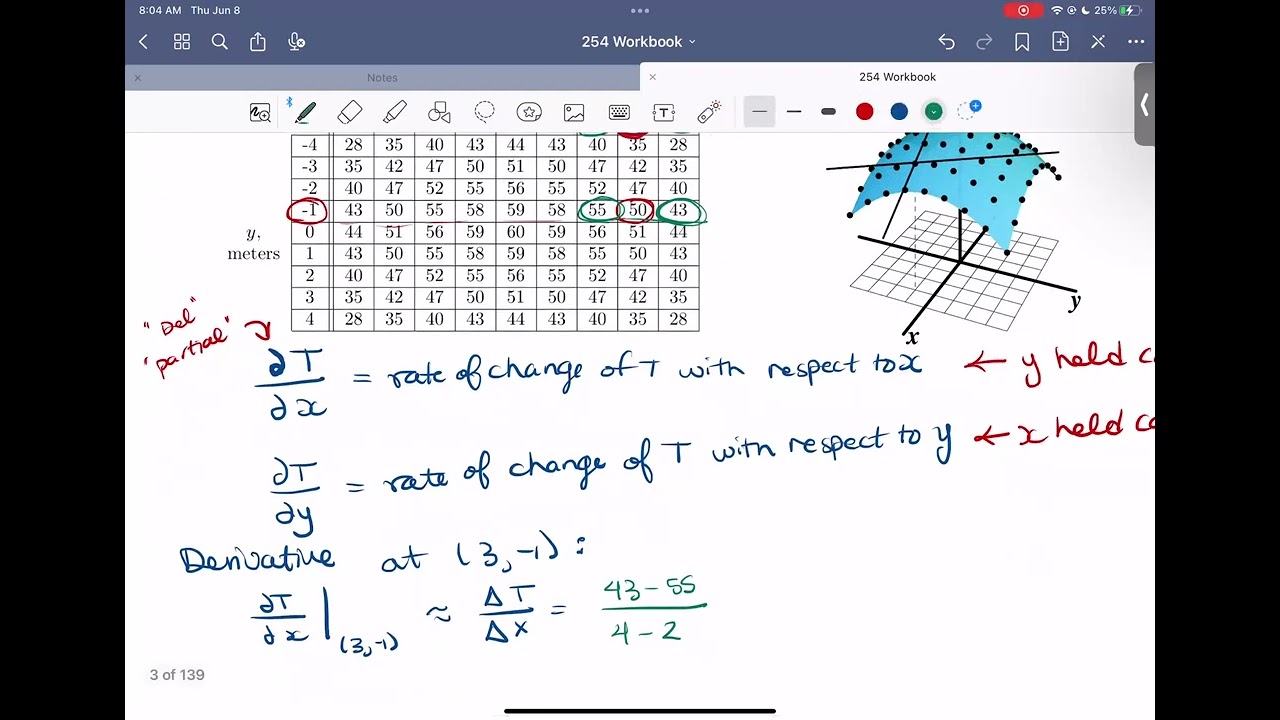 8:04 AM Thu Jun 8
25%
254 Workbook
Notes
254 Workbook
-4 28 35 40 43 44 43 40 35 28
-3 35 42 47 50 51 50 47 42 35
-2 40 47 52 55 56 55 52 47 40
-1 43 50 55 58 59 58 55 50 43
y, 0 44 51 56 59 60 59 56 51 44
meters 1 43 50 55 58 59 58 55 50 43
2 40 47 52 55 56 55 52 47 40
3 35 42 47 50 51 50 47 42 35
4 28 35 40 43 44 43 40 35 28
y
x
"Del"
"partial"
∂T/∂x = rate of change of T with respect to x ← y held
∂T/∂y = rate of change of T with respect to y ← x held
Derivative at (3,-1):
∂T/∂x |(3,-1) ≈ ΔT/Δx = 43-55/4-2
3 of 139